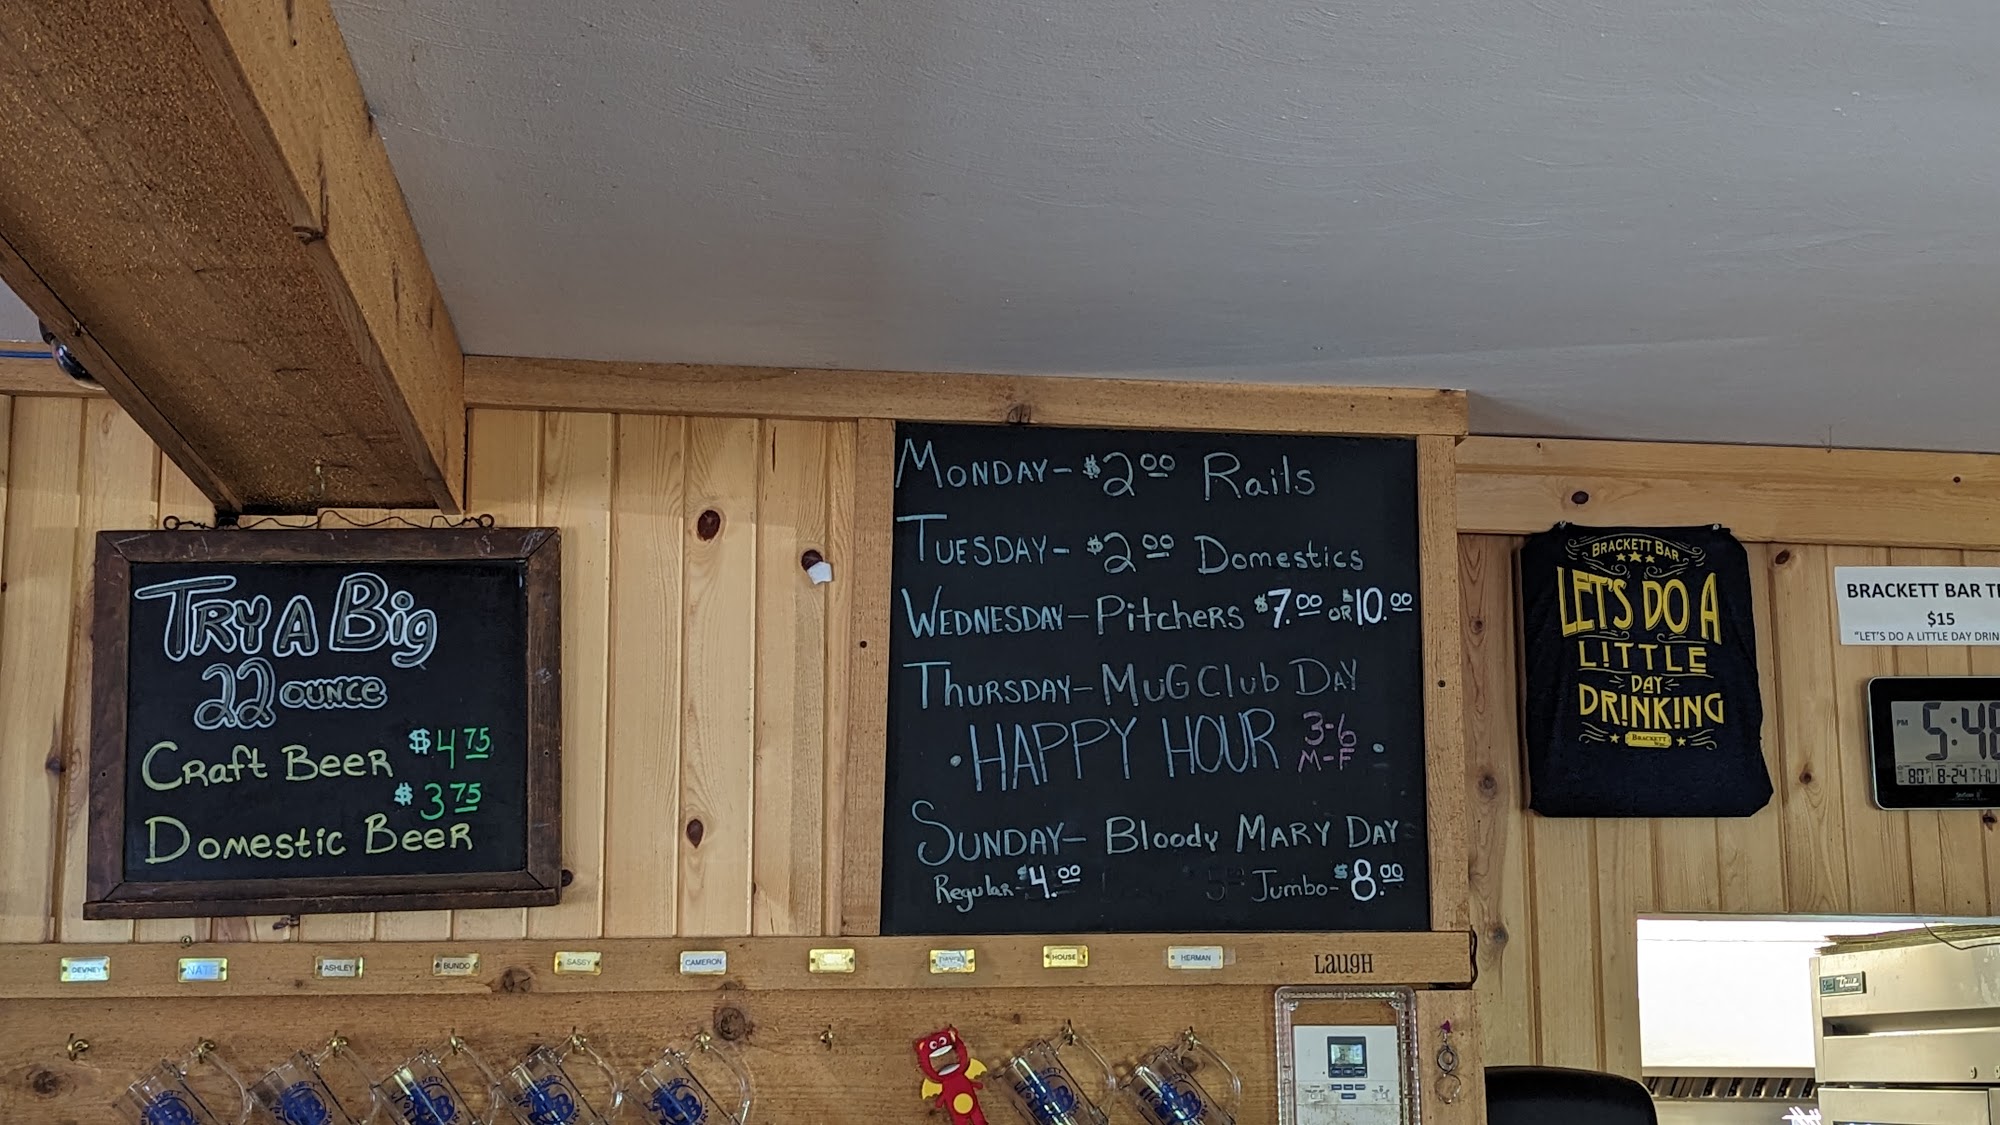 TRY A Big
22 OUNCE
Craft Beer $4.75
$3.75
Domestic Beer
MONDAY- $2.00 Rails
TUESDAY- $2.00 Domestics
WEDNESDAY- Pitchers $7.00 OR $10.00
THURSDAY- MUG Club DAY
• HAPPY HOUR 3-6 M-F •
SUNDAY- Bloody MARY DAY
Regular- $4.00 Jumbo- $8.00
BRACKETT BAR
LET'S DO A
LITTLE
DAY
DRINKING
BRACKETT
BRACKETT BAR
$15
"LET'S DO A LITTLE DAY
PM 5:4
80°F 8-24 THU
DEVNEY NATE ASHLEY BUNDO SASSY CAMERON HOUSE HERMAN
LAUGH
True